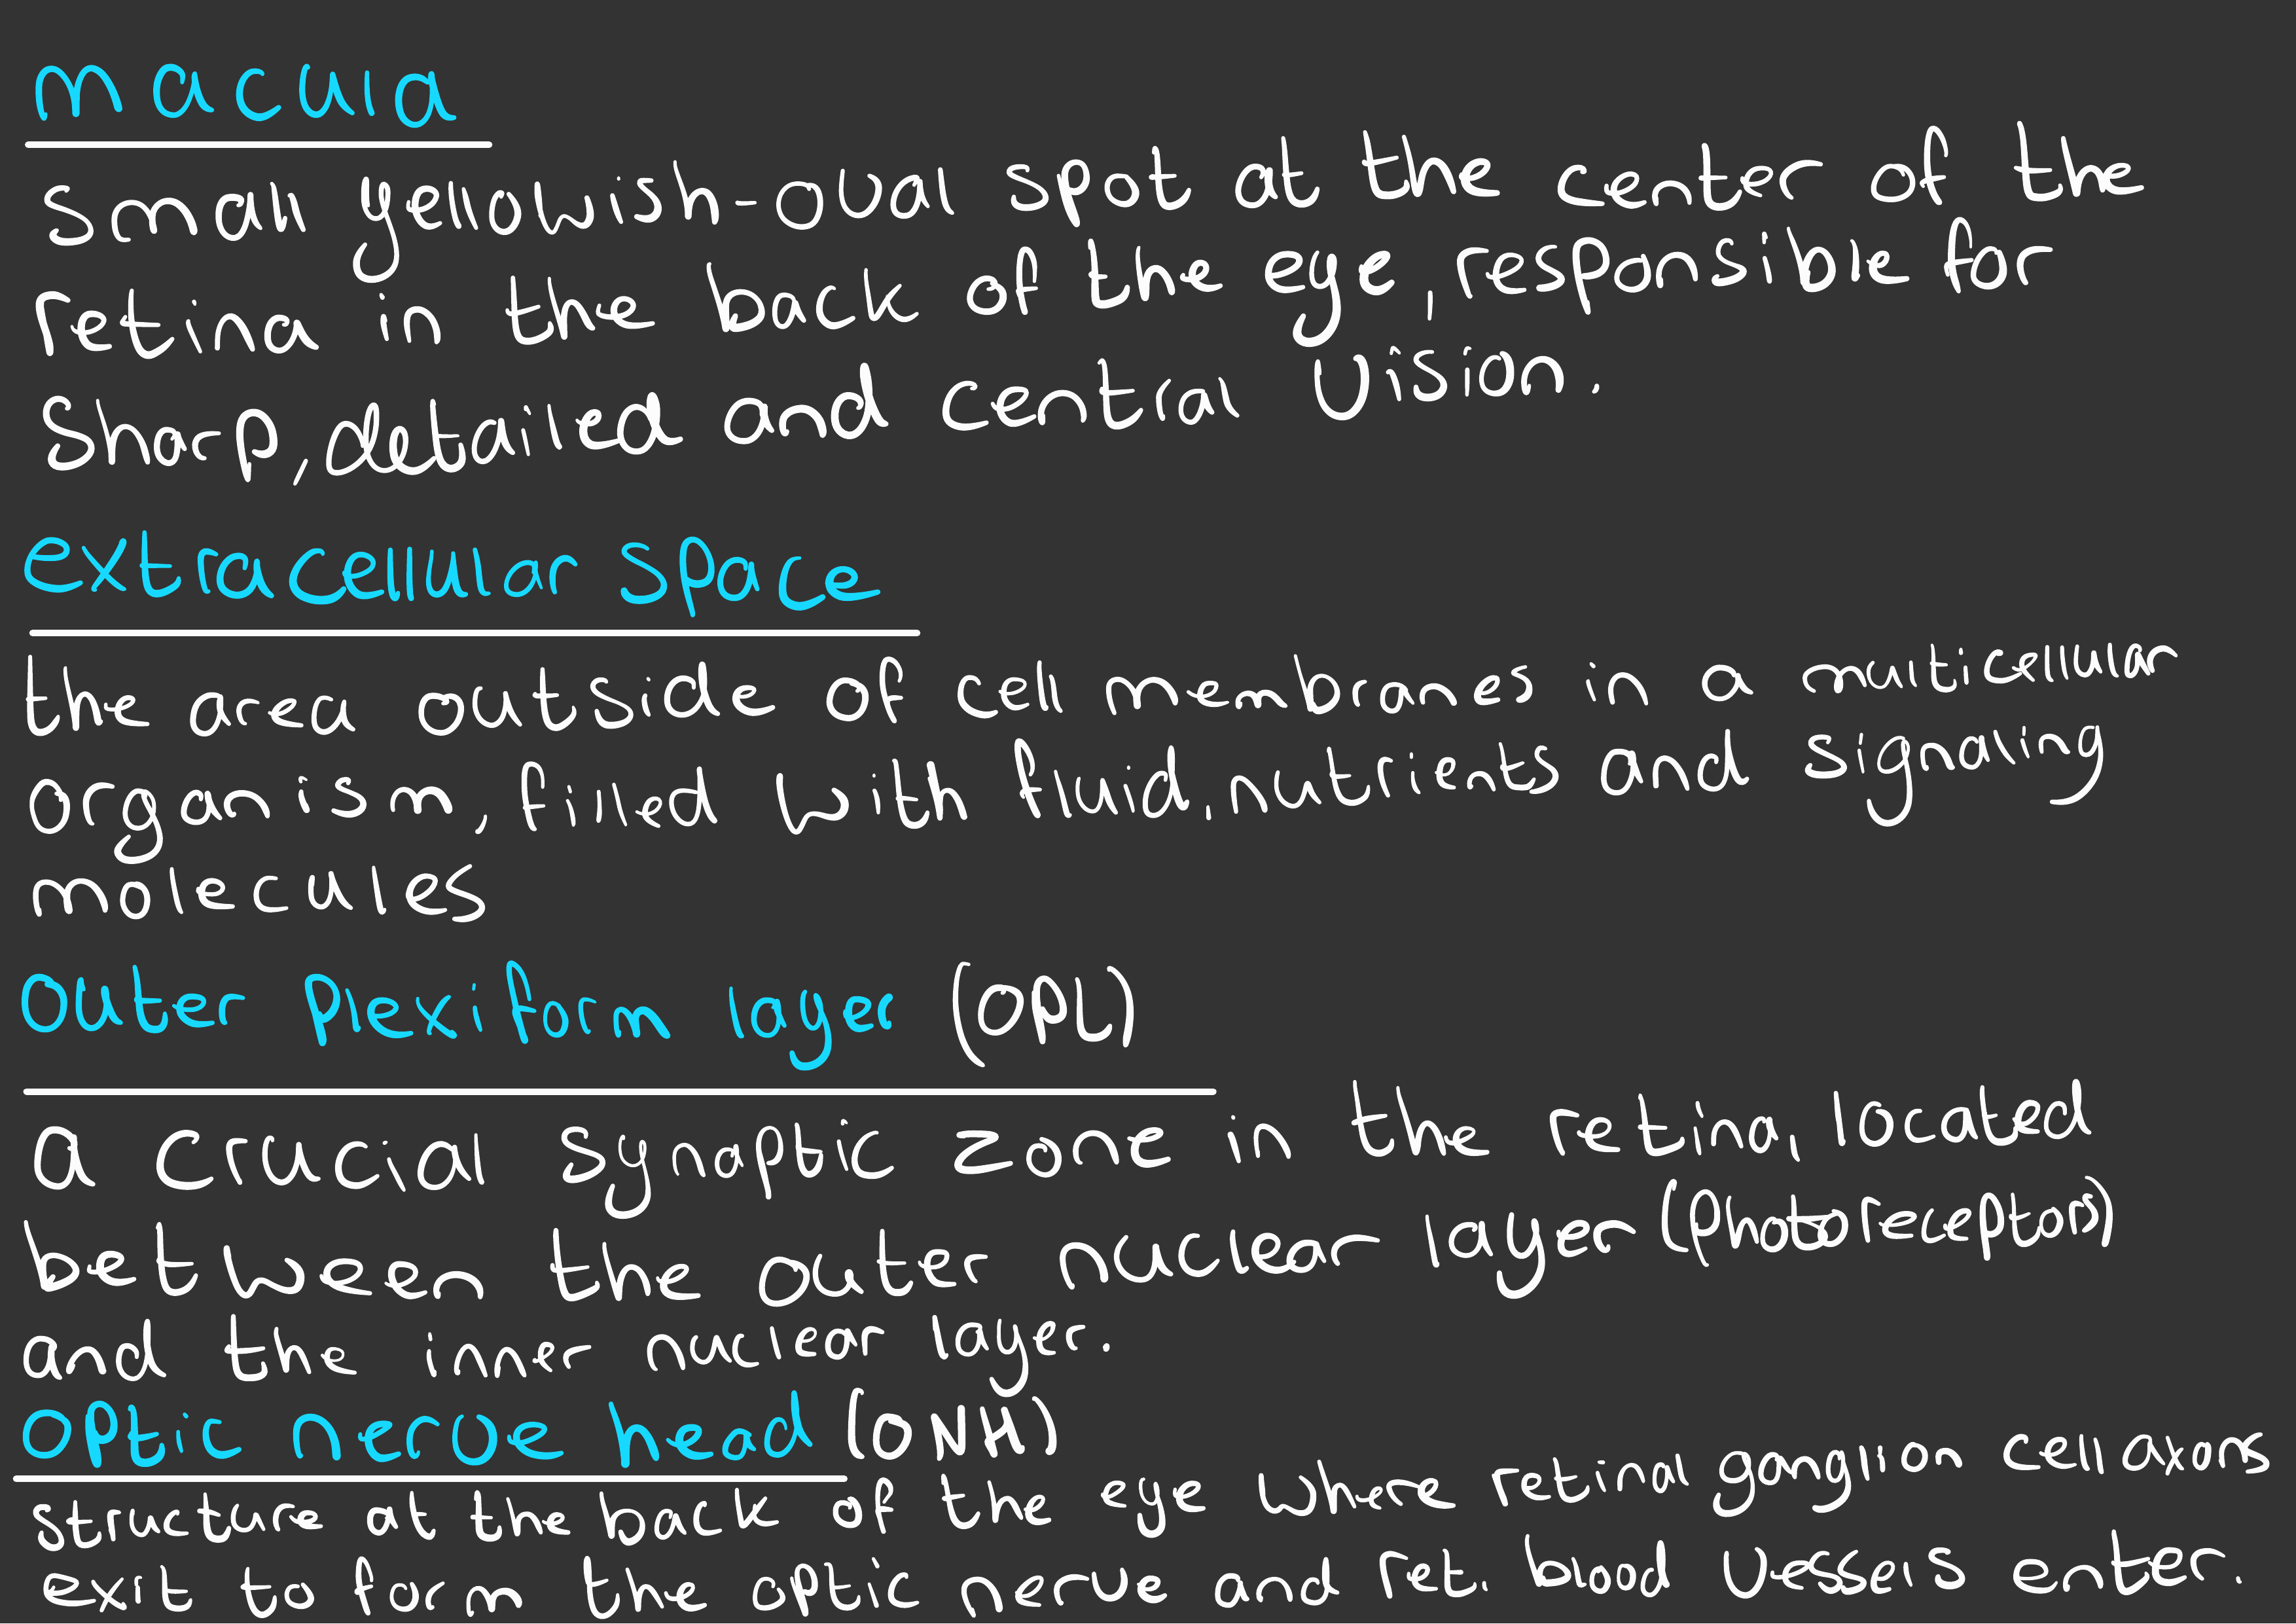 Macula
Small yellowish-oval spot at the center of the
retina in the back of the eye, responsible for
Sharp, detailed and central vision.
extracellular space
the area outside of cell membranes in a multicellular
organism, filled with fluid, nutrients and signaling
molecules
Outer plexiform layer (OPL)
a crucial synaptic zone in the retina, located
between the outer nuclear layer (photoreceptors)
and the inner nuclear layer.
optic nerve head (ONH)
structure at the back of the eye where retinal ganglion cell axons
exit to form the optic nerve and ret. blood vessels enter.